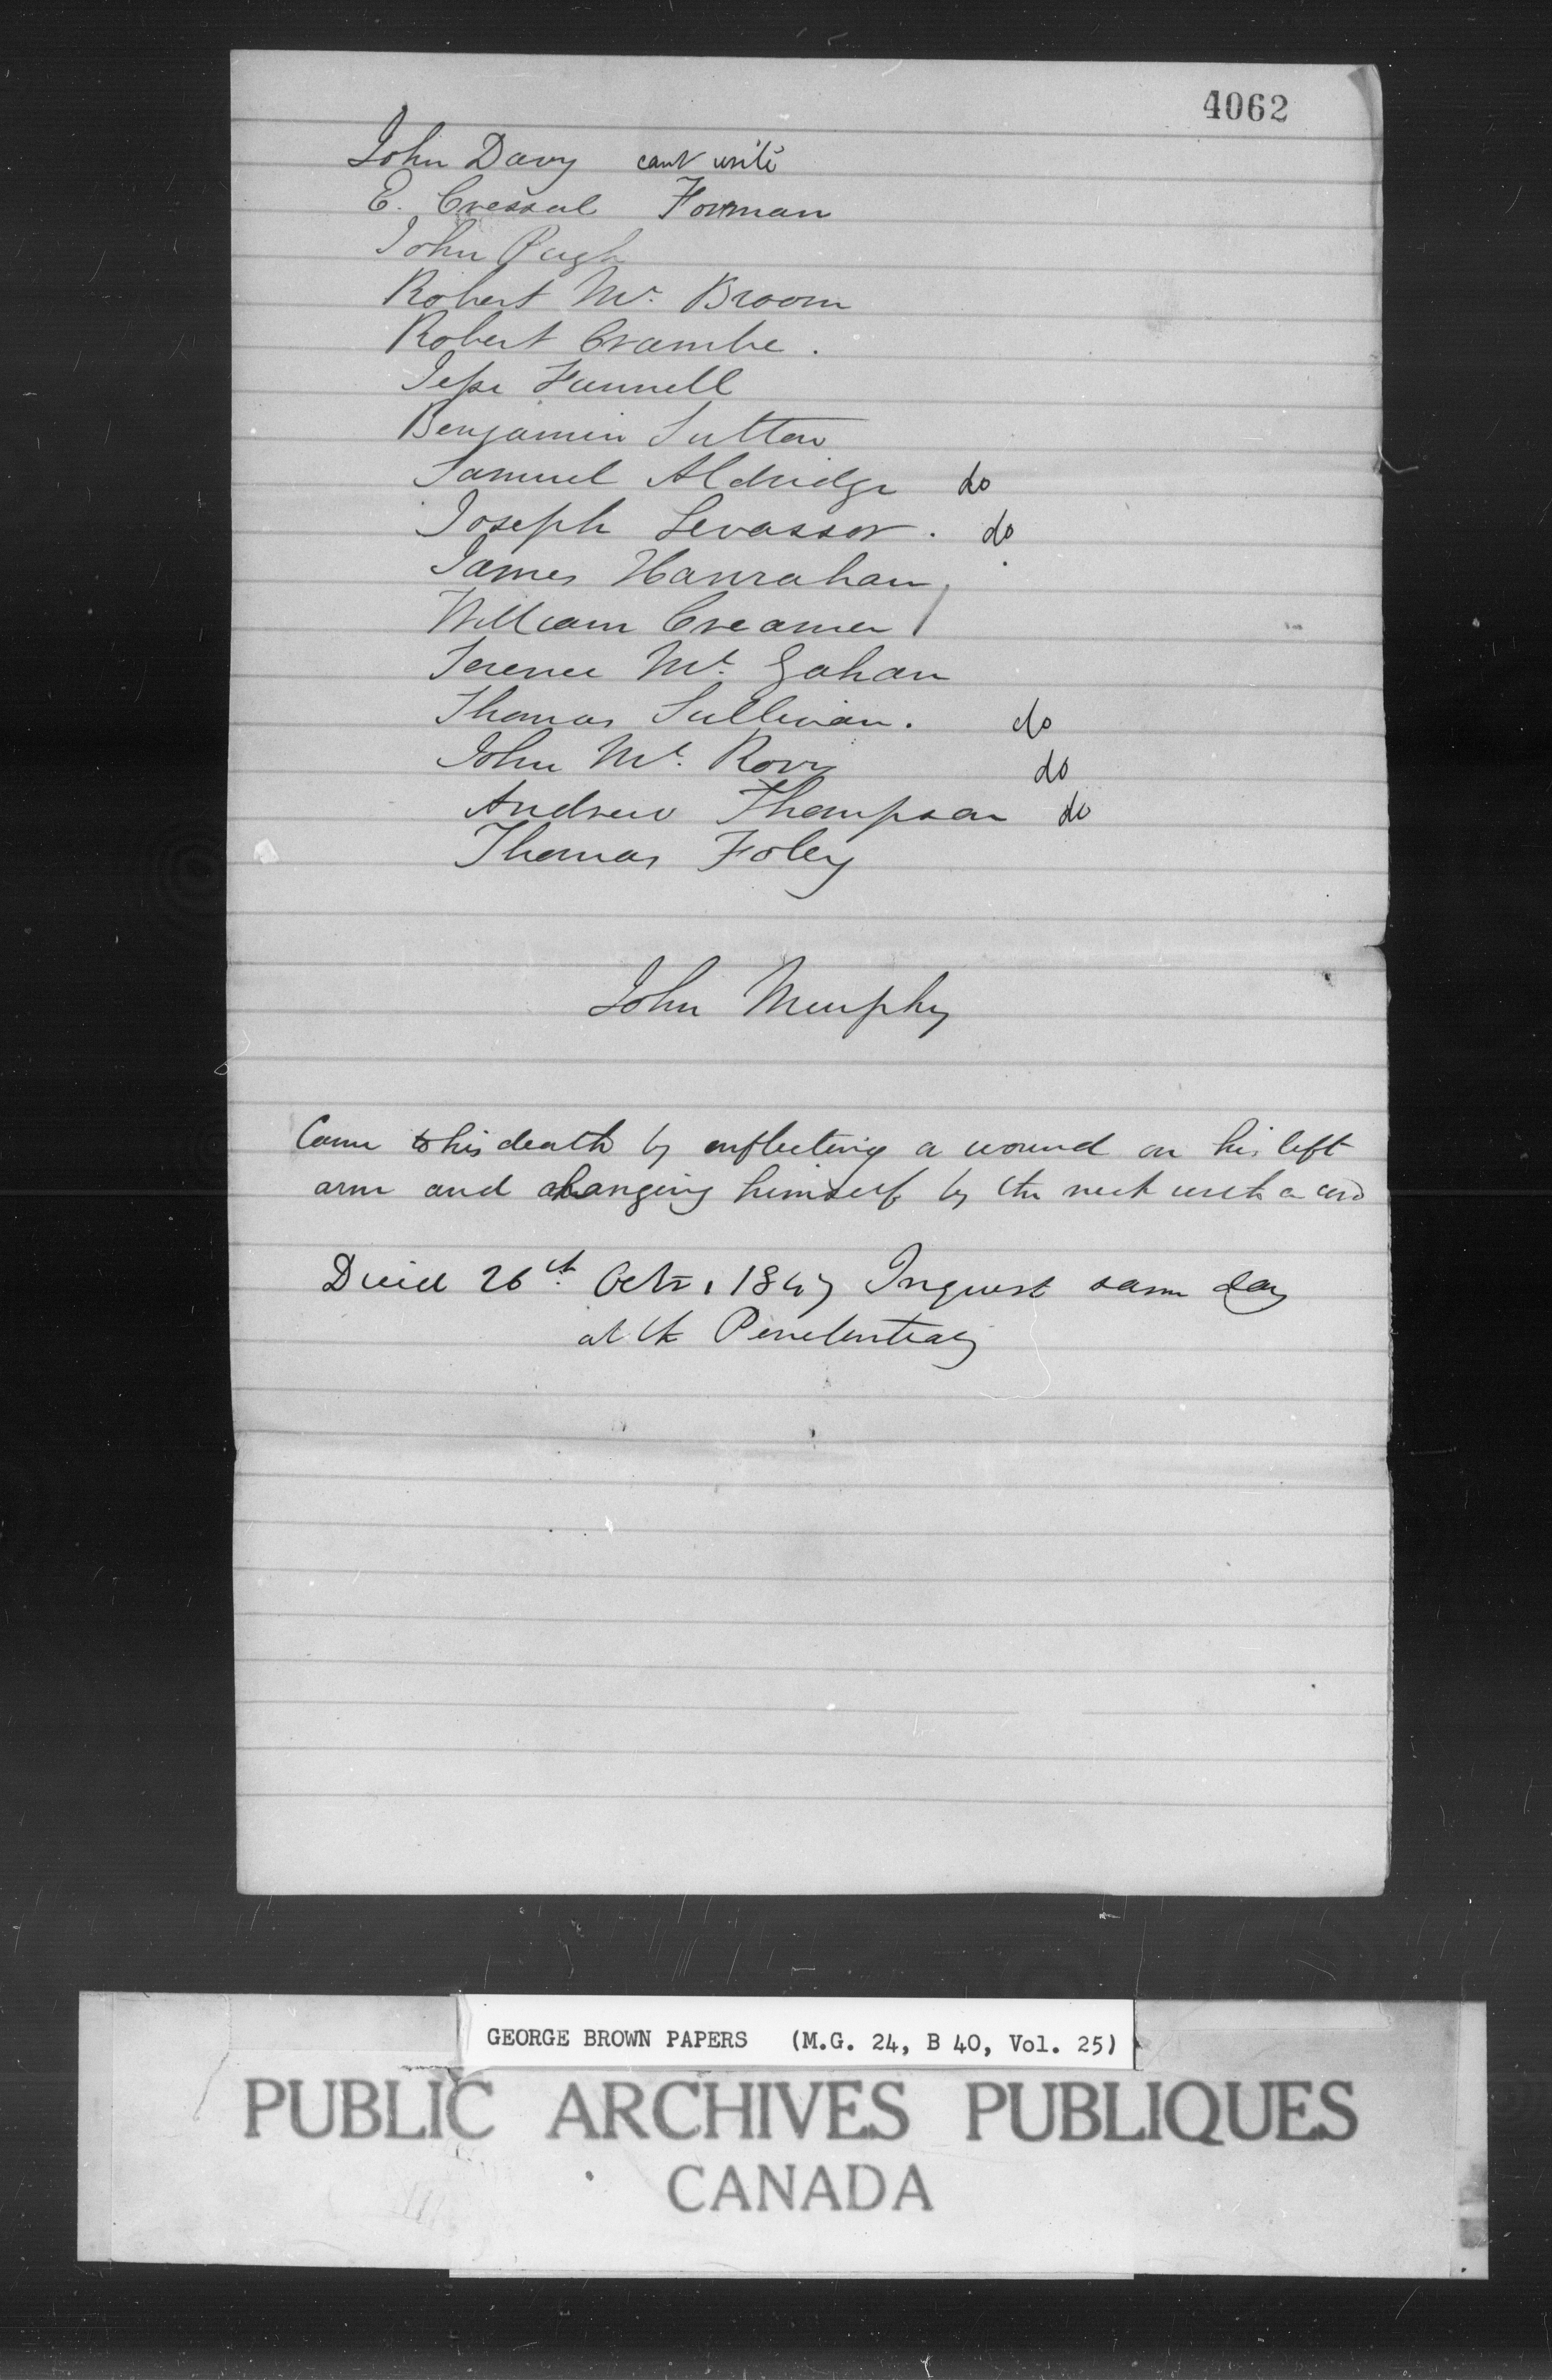 4062
John Davy cant write
E. Cressal Forman
John Pugh
Robert Mc. Broom
Robert Crambe.
Jesse Funnell
Benjamin Sutton
Samuel Aldridge do
Joseph Levassor. do
James Hanrahan
William Creamer
Terence Mc. Gahan
Thomas Sullivan. do
John Mc. Rory do
Andrew Thompson do
Thomas Foley
John Murphy
Came to his death by inflicting a wound on his left
arm and hanging himself by the neck with a cord
Died 26th Octr. 1847 Inquest same day
at the Penetentiary
GEORGE BROWN PAPERS (M.G. 24, B 40, Vol. 25)
PUBLIC ARCHIVES PUBLIQUES
CANADA